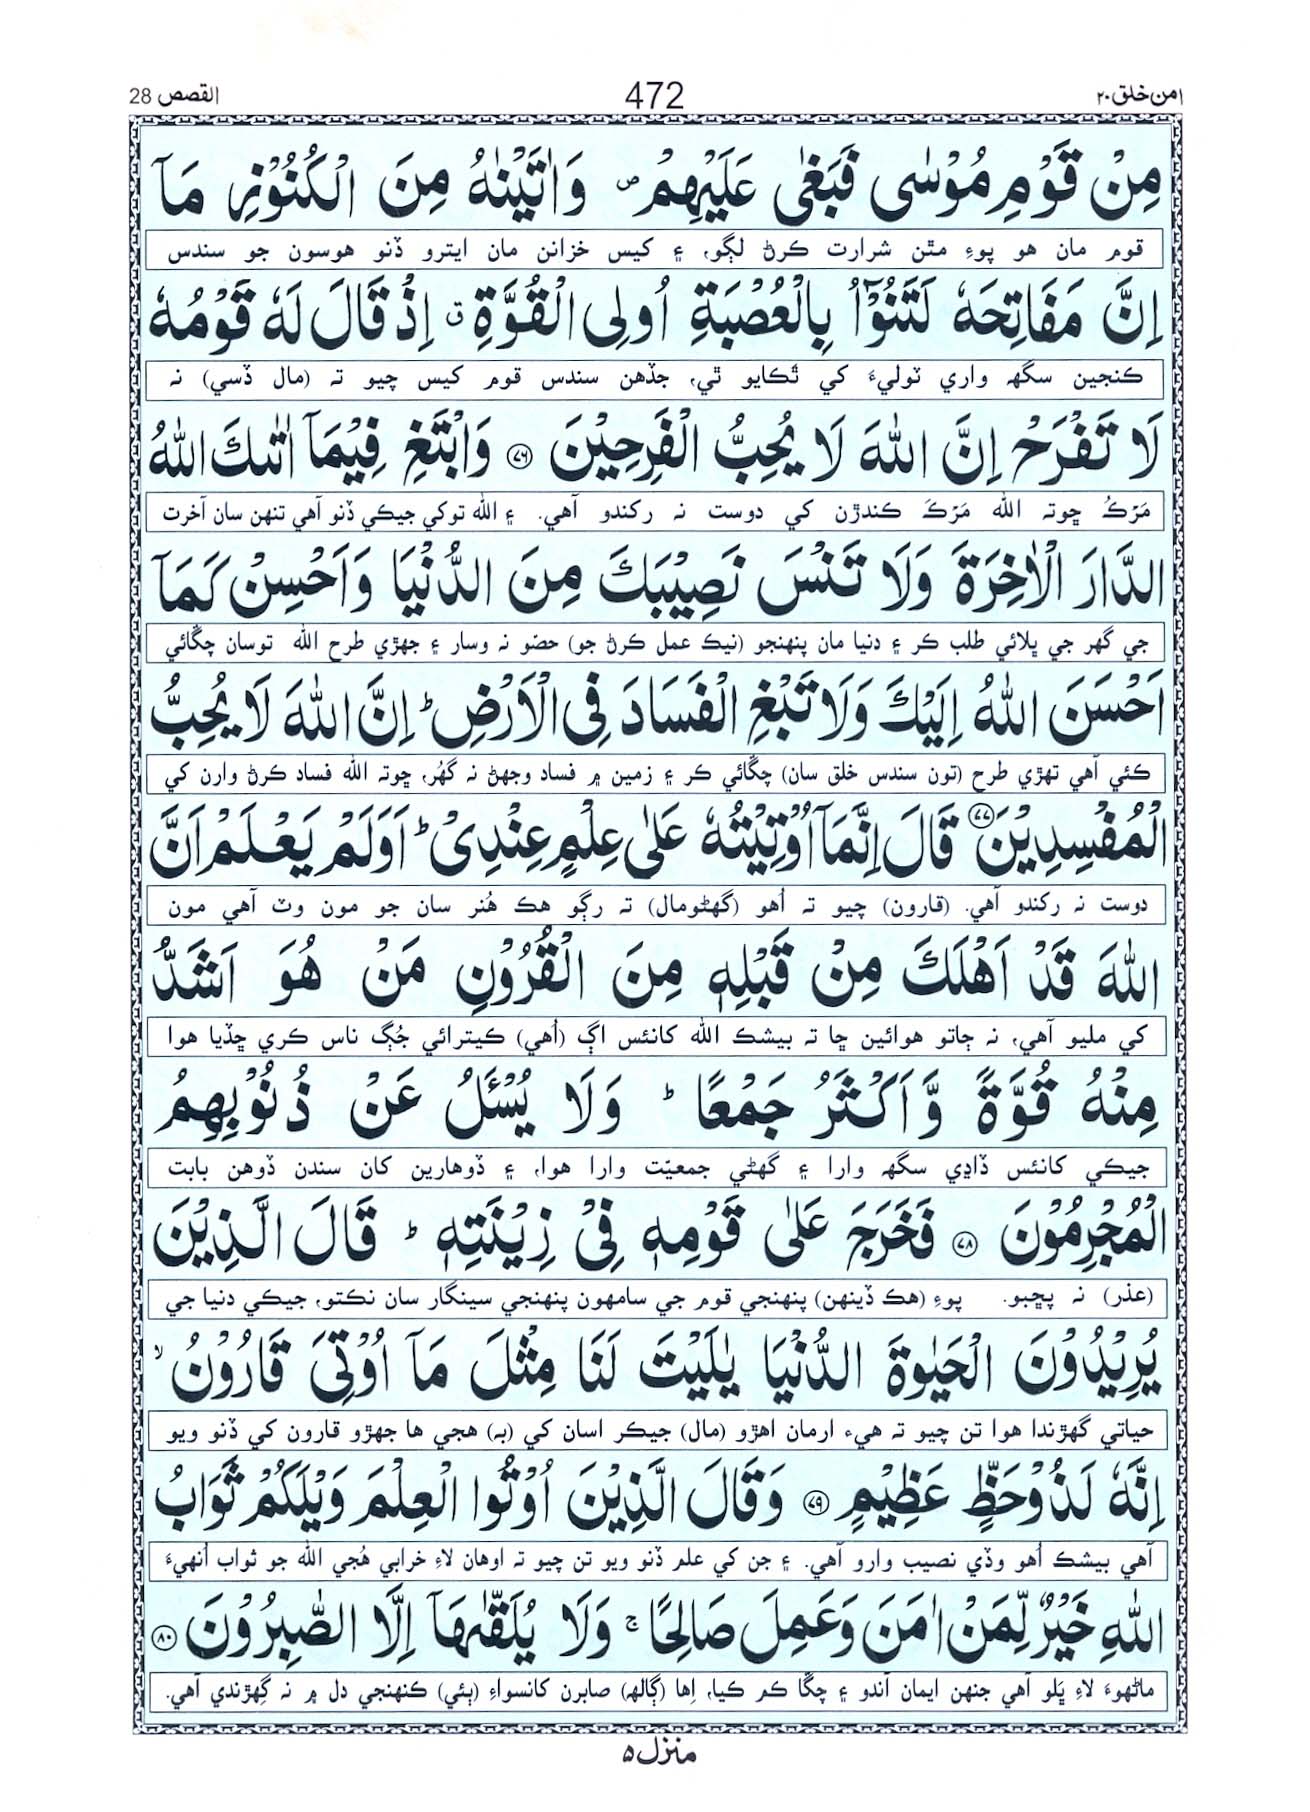 امن خلق ٢٠
472
القصص 28
مِنْ قَوْمِ مُوْسٰى فَبَغٰى عَلَيْهِمْ ۪ وَاٰتَيْنٰهُ مِنَ الْكُنُوْزِ مَاۤ
قوم مان هو پوءِ مٿن شرارت ڪرڻ لڳو، ۽ کيس خزانن مان ايترو ڏنو هوسون جو سندس
اِنَّ مَفَاتِحَهٗ لَتَنُوْٓاُ بِالْعُصْبَةِ اُولِى الْقُوَّةِ ۗ اِذْ قَالَ لَهٗ قَوْمُهٗ
ڪنجين سگهه واري ٽوليءَ کي ٿڪايو ٿي، جڏهن سندس قوم کيس چيو ته (مال ڏسي) نه
لَا تَفْرَحْ اِنَّ اللّٰهَ لَا يُحِبُّ الْفَرِحِيْنَ ﴿٧٦﴾ وَابْتَغِ فِيْمَاۤ اٰتٰىكَ اللّٰهُ
مَرَڪُ ڇوته الله مَرَڪَ ڪندڙن کي دوست نه رکندو آهي. ۽ الله توکي جيڪي ڏنو آهي تنهن سان آخرت
الدَّارَ الْاٰخِرَةَ وَلَا تَنْسَ نَصِيْبَكَ مِنَ الدُّنْيَا وَاَحْسِنْ كَمَاۤ
جي گهر جي ڀلائي طلب ڪر ۽ دنيا مان پنهنجو (نيڪ عمل ڪرڻ جو) حصّو نه وسار ۽ جهڙي طرح الله توسان چڱائي
اَحْسَنَ اللّٰهُ اِلَيْكَ وَلَا تَبْغِ الْفَسَادَ فِى الْاَرْضِ ؕ اِنَّ اللّٰهَ لَا يُحِبُّ
ڪئي آهي تهڙي طرح (تون سندس خلق سان) چڱائي ڪر ۽ زمين ۾ فساد وجهڻ نه گهُر، ڇوته الله فساد ڪرڻ وارن کي
الْمُفْسِدِيْنَ ﴿٧٧﴾ قَالَ اِنَّمَاۤ اُوْتِيْتُهٗ عَلٰى عِلْمٍ عِنْدِىْ ؕ اَوَلَمْ يَعْلَمْ اَنَّ
دوست نه رکندو آهي. (قارون) چيو ته اُهو (گهڻومال) ته رڳو هڪ هُنر سان جو مون وٽ آهي مون
اللّٰهَ قَدْ اَهْلَكَ مِنْ قَبْلِهٖ مِنَ الْقُرُوْنِ مَنْ هُوَ اَشَدُّ
کي مليو آهي، نه ڄاتو هوائين ڇا ته بيشڪ الله کانئس اڳ (اُهي) ڪيترائي جُڳ ناس ڪري ڇڏيا هوا
مِنْهُ قُوَّةً وَّاَكْثَرُ جَمْعًا ؕ وَلَا يُسْـَٔلُ عَنْ ذُنُوْبِهِمُ
جيڪي کانئس ڏاڍي سگهه وارا ۽ گهڻي جمعيّت وارا هوا، ۽ ڏوهارين کان سندن ڏوهن بابت
الْمُجْرِمُوْنَ ﴿٧٨﴾ فَخَرَجَ عَلٰى قَوْمِهٖ فِىْ زِيْنَتِهٖ ؕ قَالَ الَّذِيْنَ
(عذر) نہ پڇبو. پوءِ (هڪ ڏينهن) پنهنجي قوم جي سامهون پنهنجي سينگار سان نڪتو، جيڪي دنيا جي
يُرِيْدُوْنَ الْحَيٰوةَ الدُّنْيَا يٰلَيْتَ لَنَا مِثْلَ مَاۤ اُوْتِىَ قَارُوْنُ ۙ
حياتي گهڙندا هوا تن چيو ته هيءِ ارمان اهڙو (مال) جيڪر اسان کي (به) هجي ها جهڙو قارون کي ڏنو ويو
اِنَّهٗ لَذُوْ حَظٍّ عَظِيْمٍ ﴿٧٩﴾ وَقَالَ الَّذِيْنَ اُوْتُوا الْعِلْمَ وَيْلَكُمْ ثَوَابُ
آهي بيشڪ اُهو وڏي نصيب وارو آهي. ۽ جن کي علم ڏنو ويو تن چيو ته اوهان لاءِ خرابي هُجي الله جو ثواب اُنهيءَ
اللّٰهِ خَيْرٌ لِّمَنْ اٰمَنَ وَعَمِلَ صَالِحًا ۚ وَلَا يُلَقّٰىهَاۤ اِلَّا الصّٰبِرُوْنَ ﴿٨٠﴾
ماڻهوءَ لاءِ ڀَلو آهي جنهن ايمان آندو ۽ چڱا ڪم ڪيا، اِها (ڳالهه) صابرن کانسواءِ (ٻئي) ڪنهنجي دل ۾ نه گِهڙندي آهي.
منزل ٥